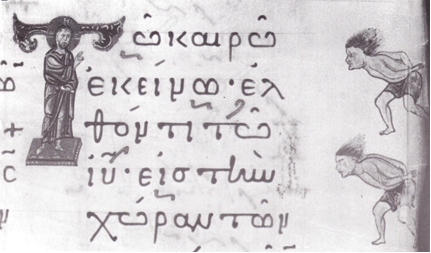 Τῶ καιρῶ
ἐκείνω· ἐλ
θόντι τῶ
ἰῡ· εἰς τὴν
χώραν τῶν